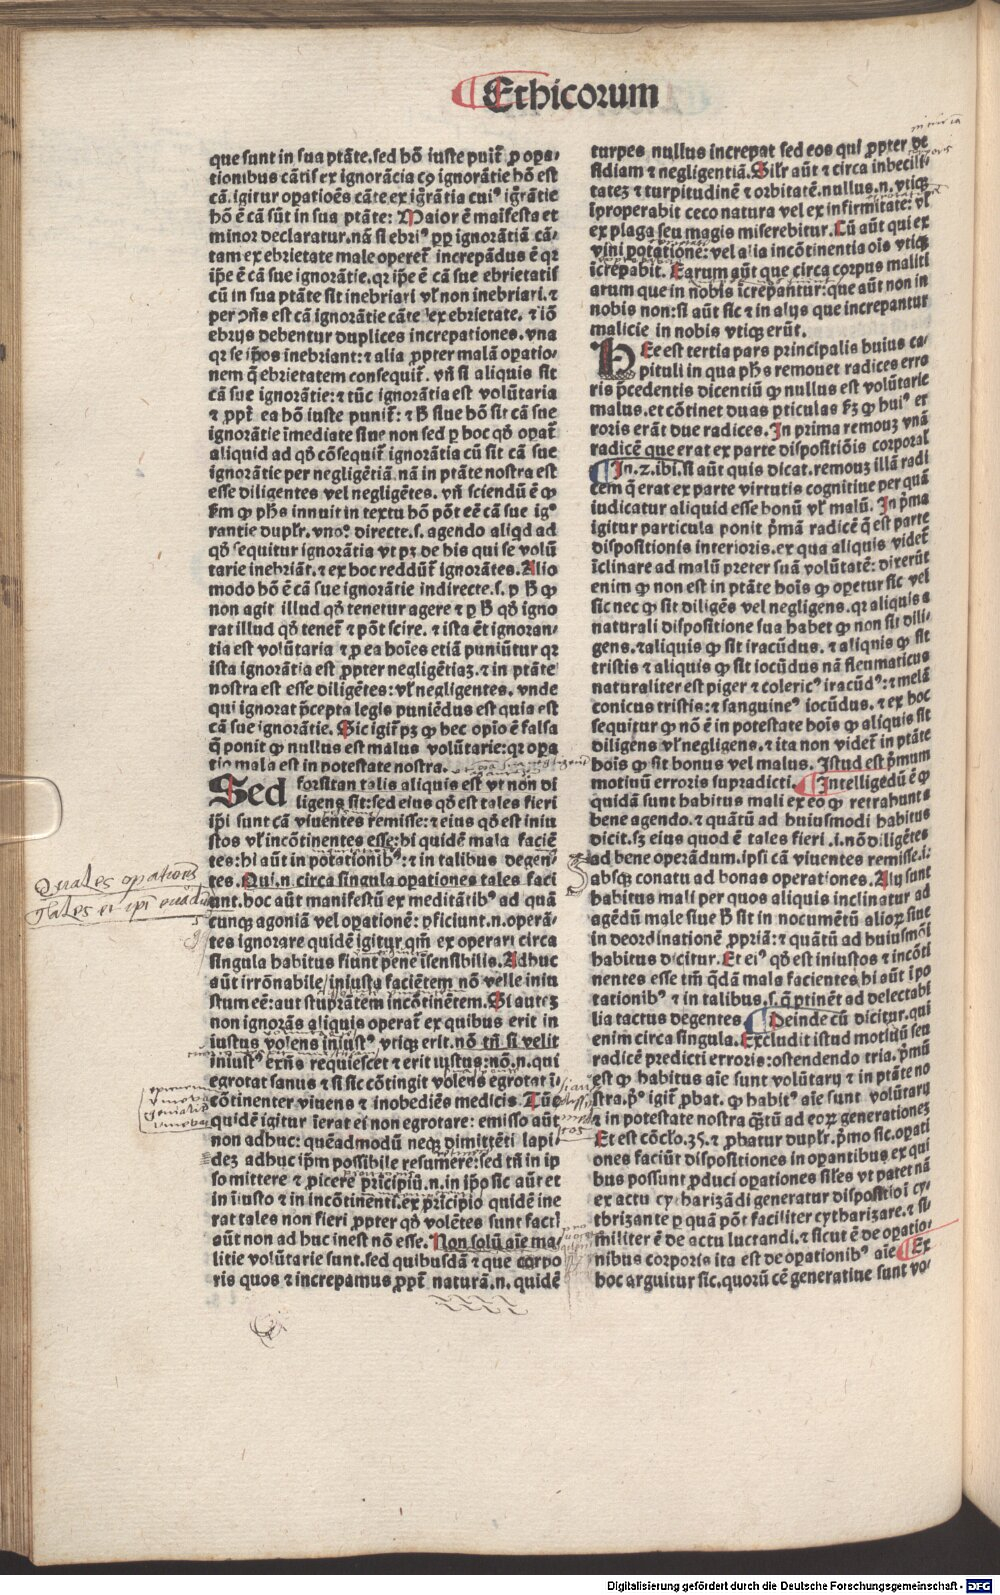 Ethicorum
que sunt in sua ptãte.sed hõ iuste puiť ꝓ opa-
tionibus cãtis ex ignorãcia cꝰ ignorãtie hõ est
cã. igitur opatioẽs cãte ex igrãtia cuiꝰ igrãtie
hõ ẽ cã sũt in sua ptãte: Maior ẽ maifesta et
minor declaratur.nã si ebriꝰ pp ignorãtiã cã-
tam ex ebrietate male operet increpãdus ẽ qr
ip̃e ẽ cã sue ignorãtie. qr ip̃e ẽ cã sue ebrietatis
cũ in sua ptãte sit inebriari vl̃ non inebriari.⁊
per ɔñs est cã ignorãtie cãte ex ebrietate. ⁊ iõ
ebrijs debentur duplices increpationes. vna
qr se ip̃os inebriant: ⁊ alia ꝓpter malã opatio-
nem q̃ ebrietatem consequiť. vñ si aliquis sit
cã sue ignorãtie: ⁊ tũc ignorãtia est volũtaria
⁊ ꝓpť ea hõ iuste puniť: ⁊ ħ siue hõ sit cã sue
ignorãtie ĩmediate siue non sed ꝑ hoc qð opať
aliquid ad qð cõsequiť ignorãtia cũ sit cã sue
ignorãtie per negligẽtiã. nã in ptãte nostra est
esse diligentes vel negligẽtes. vñ sciendũ ẽ ꝙ
ẜm ꝙ pħs innuit in textu hõ põt eẽ cã sue igꝰ
rantie duplr̃. vnoº directe.s. agendo aliqd ad
qð sequitur ignorãtia vt pꝫ de his qui se volũ
tarie inebriãt. ⁊ ex hoc reddũť ignorãtes. Alio
modo hõ ẽ cã sue ignorãtie indirecte.s. ꝑ ħ ꝙ
non agit illud qð tenetur agere ⁊ ꝑ ħ qð igno
rat illud qð teneť ⁊ põt scire. ⁊ ista ẽt ignoran-
tia est voluntaria ⁊ ꝓ ea hoĩes etiã puniũtur qr
ista ignorãtia est ꝓpter negligẽtiaꝫ. ⁊ in ptãte
nostra est esse diligẽtes: vl̃ negligentes. vnde
qui ignorat p̃cepta legis puniẽdus est quia est
cã sue ignorãtie. Sic igiť pꝫ ꝙ hec opio ẽ falsa
q̃ ponit ꝙ nullus est malus volũtarie:qr opa
tio mala est in potestate nostra.
Sed forsitan talis aliquis est vt non di
ligens sit:sed eius qð est tales fieri
ip̃i sunt cã viuentes remisse: ⁊ eius qð est iniu
stos vl̃ incõtinentes esse:hi quidẽ mala faciẽ
tes: hi aũt in potationibꝰ: ⁊ in talibus degen-
tes. Qui.n. circa singula opationes tales faci
unt. hoc aũt manifestũ ex meditãtibꝰ ad quã
cunqꝫ agoniã vel opationẽ: ꝑficiunt.n.operã-
tes ignorare quidẽ igitur qm̃ ex operari circa
singula habitus fiunt pene ĩsensibilis. Adhuc
aũt irrõnabile/iniusta faciẽtem nõ velle iniu
stum eẽ: aut stuprãtem incõtinẽtem. Si auteꝫ
non ignorãs aliquis operať ex quibus erit in
iustus volens iniustꝰ vtiqꝫ erit. nõ tñ si velit
iniustꝰ exñs requiescet ⁊ erit iustus: nõ.n.qui
egrotat sanus ⁊ si sic cõtingit volẽs egrotat ĩ-
cõtinenter viuens ⁊ inobediẽs medicis. Tũc
quidẽ igitur ierat ei non egrotare: emisso aũt
non adhuc: quẽadmodũ neqꝫ dimittẽti lapi-
deꝫ adhuc ip̃m possibile resumere:sed tñ in ip
so mittere ⁊ ꝓicere p̃ricipiũ.n.in ip̃o sic aũt et
in ĩiusto ⁊ in incõtinenti.ex p̃ricipio quidẽ ine
rat tales non fieri ꝓpter qð volẽtes sunt facti
aũt non ad huc inest nõ esse. Non solũ aĩe ma-
litie volũtarie sunt.sed quibusdã ⁊ que corpo
ris quos ⁊ increpamus ꝓpť naturã.n. quidẽ
turpes nullus increpat sed eos qui ꝓpter de
sidiam ⁊ negligentiã. Silr̃ aũt ⁊ circa inbecilli
tateꝫ ⁊ turpitudinẽ ⁊ orbitatẽ.nullus.n. vtiqꝫ
ĩproperabit ceco natura vel ex infirmitate: vl̃
ex plaga seu magis miserebitur. Cũ aũt qui ex
vini potatione: vel alia incõtinentia oĩs vtiqꝫ
ĩcrepabit. Earum aũt que circa corpus maliti
arum que in nobis ĩcrepantur:que aũt non in
nobis non:si aũt sic ⁊ in alijs que increpantur
malicie in nobis vtiqꝫ erũt.
Hec est tertia pars principalis huius ca-
pituli in qua pħs remouet radices erro
ris p̃cedentis dicentiũ ꝙ nullus est volũtarie
malus.et cõtinet duas pticulas ẜꝫ ꝙ huiꝰ er
roris erãt due radices. In prima remouꝫ vnã
radicẽ que erat ex parte dispositiõis corporať
In.2.ibi.si aũt quis dicat.remouꝫ illã radi
cem q̃ erat ex parte virtutis cognitiue per quã
iudicatur aliquid esse bonũ vl̃ malũ. In p̃ma
igitur particula ponit p̃mã radicẽ q̃ est parte
dispositionis interioris.ex qua aliquis videť
ĩclinare ad malũ preter suã volũtatẽ: dixerũt
enim ꝙ non est in ptãte hoĩs ꝙ opetur sic vel
sic nec ꝙ sit diligẽs vel negligens. qr aliquis a
naturali dispositione sua habet ꝙ non sit dili-
gens. ⁊ aliquis ꝙ sit iracũdus. ⁊ aliquis ꝙ sit
tristis ⁊ aliquis ꝙ sit iocũdus nã fleumaticus
naturaliter est piger ⁊ colericꝰ iracũdꝰ: ⁊ melã
conicus tristis: ⁊ sanguineꝰ iocũdus. ⁊ ex hoc
sequitur ꝙ nõ ẽ in potestate hoĩs ꝙ aliquis sit
diligẽns vl̃ negligens. ⁊ ita non videť in ptãte
hoĩs ꝙ sit bonus vel malus. Istud est p̃mum
motiuũ erroris supradicti. Intelligẽdũ ẽ ꝙ
quidã sunt habitus mali ex eo ꝙ retrahunt a
bene agendo. ⁊ quãtũ ad huiusmodi habitus
dicit.sꝫ eius quod ẽ tales fieri .i. nõ diligẽtes
ad bene operãdum. ipsi cã viuentes remisse.i:
absqꝫ conatu ad bonas operationes. Alij sunt
habitus mali per quos aliquis inclinatur ad
agẽdũ male siue ħ sit in nocumẽtũ alioꝝ siue
in deordinationẽ ꝓpriã: ⁊ quãtũ ad huiusmõi
habitus dicitur. Et eiꝰ qð est iniustos ⁊ incõti
nentes esse tm̃ q̃dã mala facientes hi aũt ĩ po
tationibꝰ ⁊ in talibus.s. q̃ ptinẽt ad delectabi
lia tactus degentes. Deinde cũ dicitur. qui
enim circa singula. Excludit istud motiuũ seu
radicẽ predicti erroris:ostendendo tria. p̃mũ
est ꝙ habitus aĩe sunt volũtarij ⁊ in ptãte no
stra. p̃º igiť ꝓbat. ꝙ habitꝰ aĩe sunt volũtarij
⁊ in potestate nostra q̃tũ ad eoꝝ generationeꝫ
Et est cõclo.35. ⁊ ꝓbatur duplr̃. p̃mo sic.opati
ones faciũt dispositiones in opantibus ex qui
bus possunt ꝓduci opationes siles vt patet nã
ex actu cytharizãdi generatur dispositioi cy-
thrizante ꝑ quã põt faciliter cytharizare. ⁊ si-
militer ẽ de actu luctandi. ⁊ sicut ẽ de opatio-
nibus corporis ita est de opationibꝰ aĩe Ex
hoc arguitur sic. quorũ cẽ generatiue sunt vo-
Quales operationes
Tales et ipi euadũt
Digitalisierung gefördert durch die Deutsche Forschungsgemeinschaft - DFG